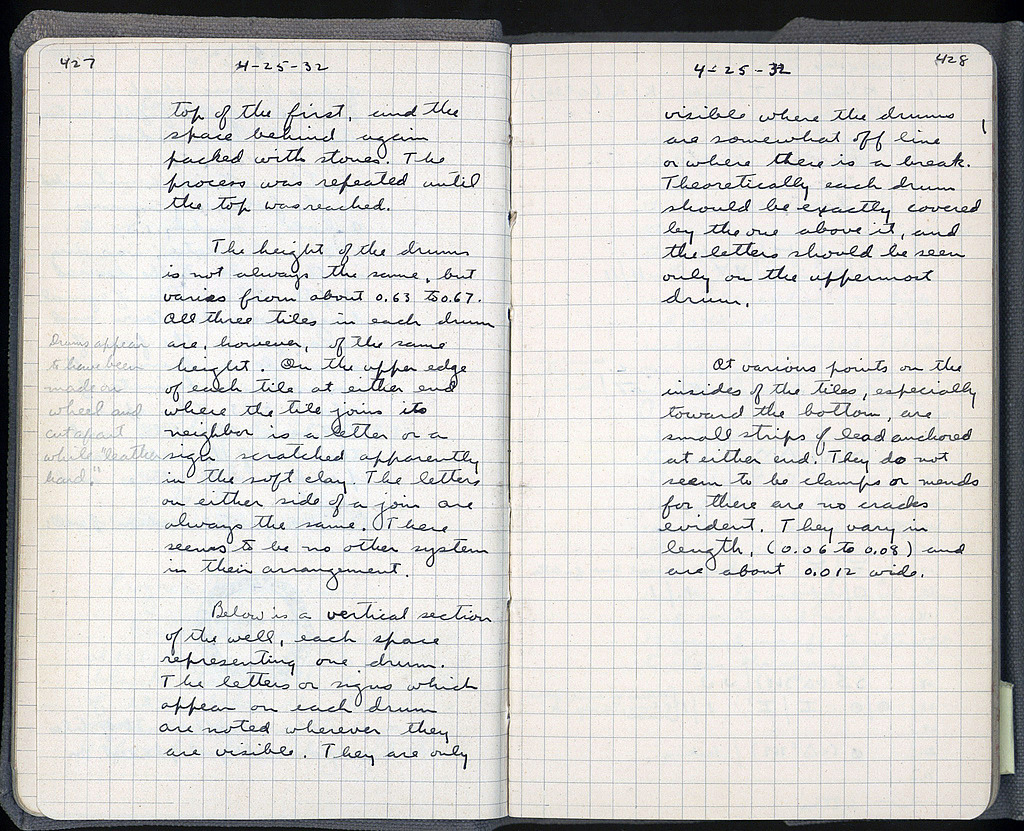 427
4-25-32
top of the first, and the
space behind again
packed with stones. The
process was repeated until
the top was reached.
The height of the drums
is not always the same, but
varies from about 0.63 to 0.67.
All three tiles in each drum
are, however, of the same
height. On the upper edge
of each tile at either end
where the tile joins its
neighbor is a letter or a
sign scratched apparently
in the soft clay. The letters
on either side of a join are
always the same. There
seems to be no other system
in their arrangement.
Drums appear
to have been
made on
wheel and
cut apart
while "leather
hard."
Below is a vertical section
of the well, each space
representing one drum.
The letters or signs which
appear on each drum
are noted wherever they
are visible. They are only
428
4-25-32
visible where the drums
are somewhat off line
or where there is a break.
Theoretically each drum
should be exactly covered
by the one above it, and
the letters should be seen
only on the uppermost
drum.
At various points on the
insides of the tiles, especially
toward the bottom, are
small strips of lead anchored
at either end. They do not
seem to be clamps or mends
for there are no cracks
evident. They vary in
length, (0.06 to 0.08) and
are about 0.012 wide.